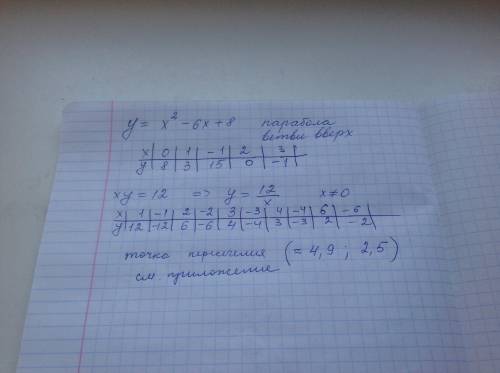 y = x² - 6x + 8 парабола
ветви вверх
x | 0 | 1 | -1 | 2 | 3
y | 8 | 3 | 15 | 0 | -1
xy = 12 => y = 12/x x ≠ 0
x | 1 | -1 | 2 | -2 | 3 | -3 | 4 | -4 | 6 | -6
y | 12 | -12 | 6 | -6 | 4 | -4 | 3 | -3 | 2 | -2
точка пересечения (≈ 4,9 ; 2,5)
см. приложение